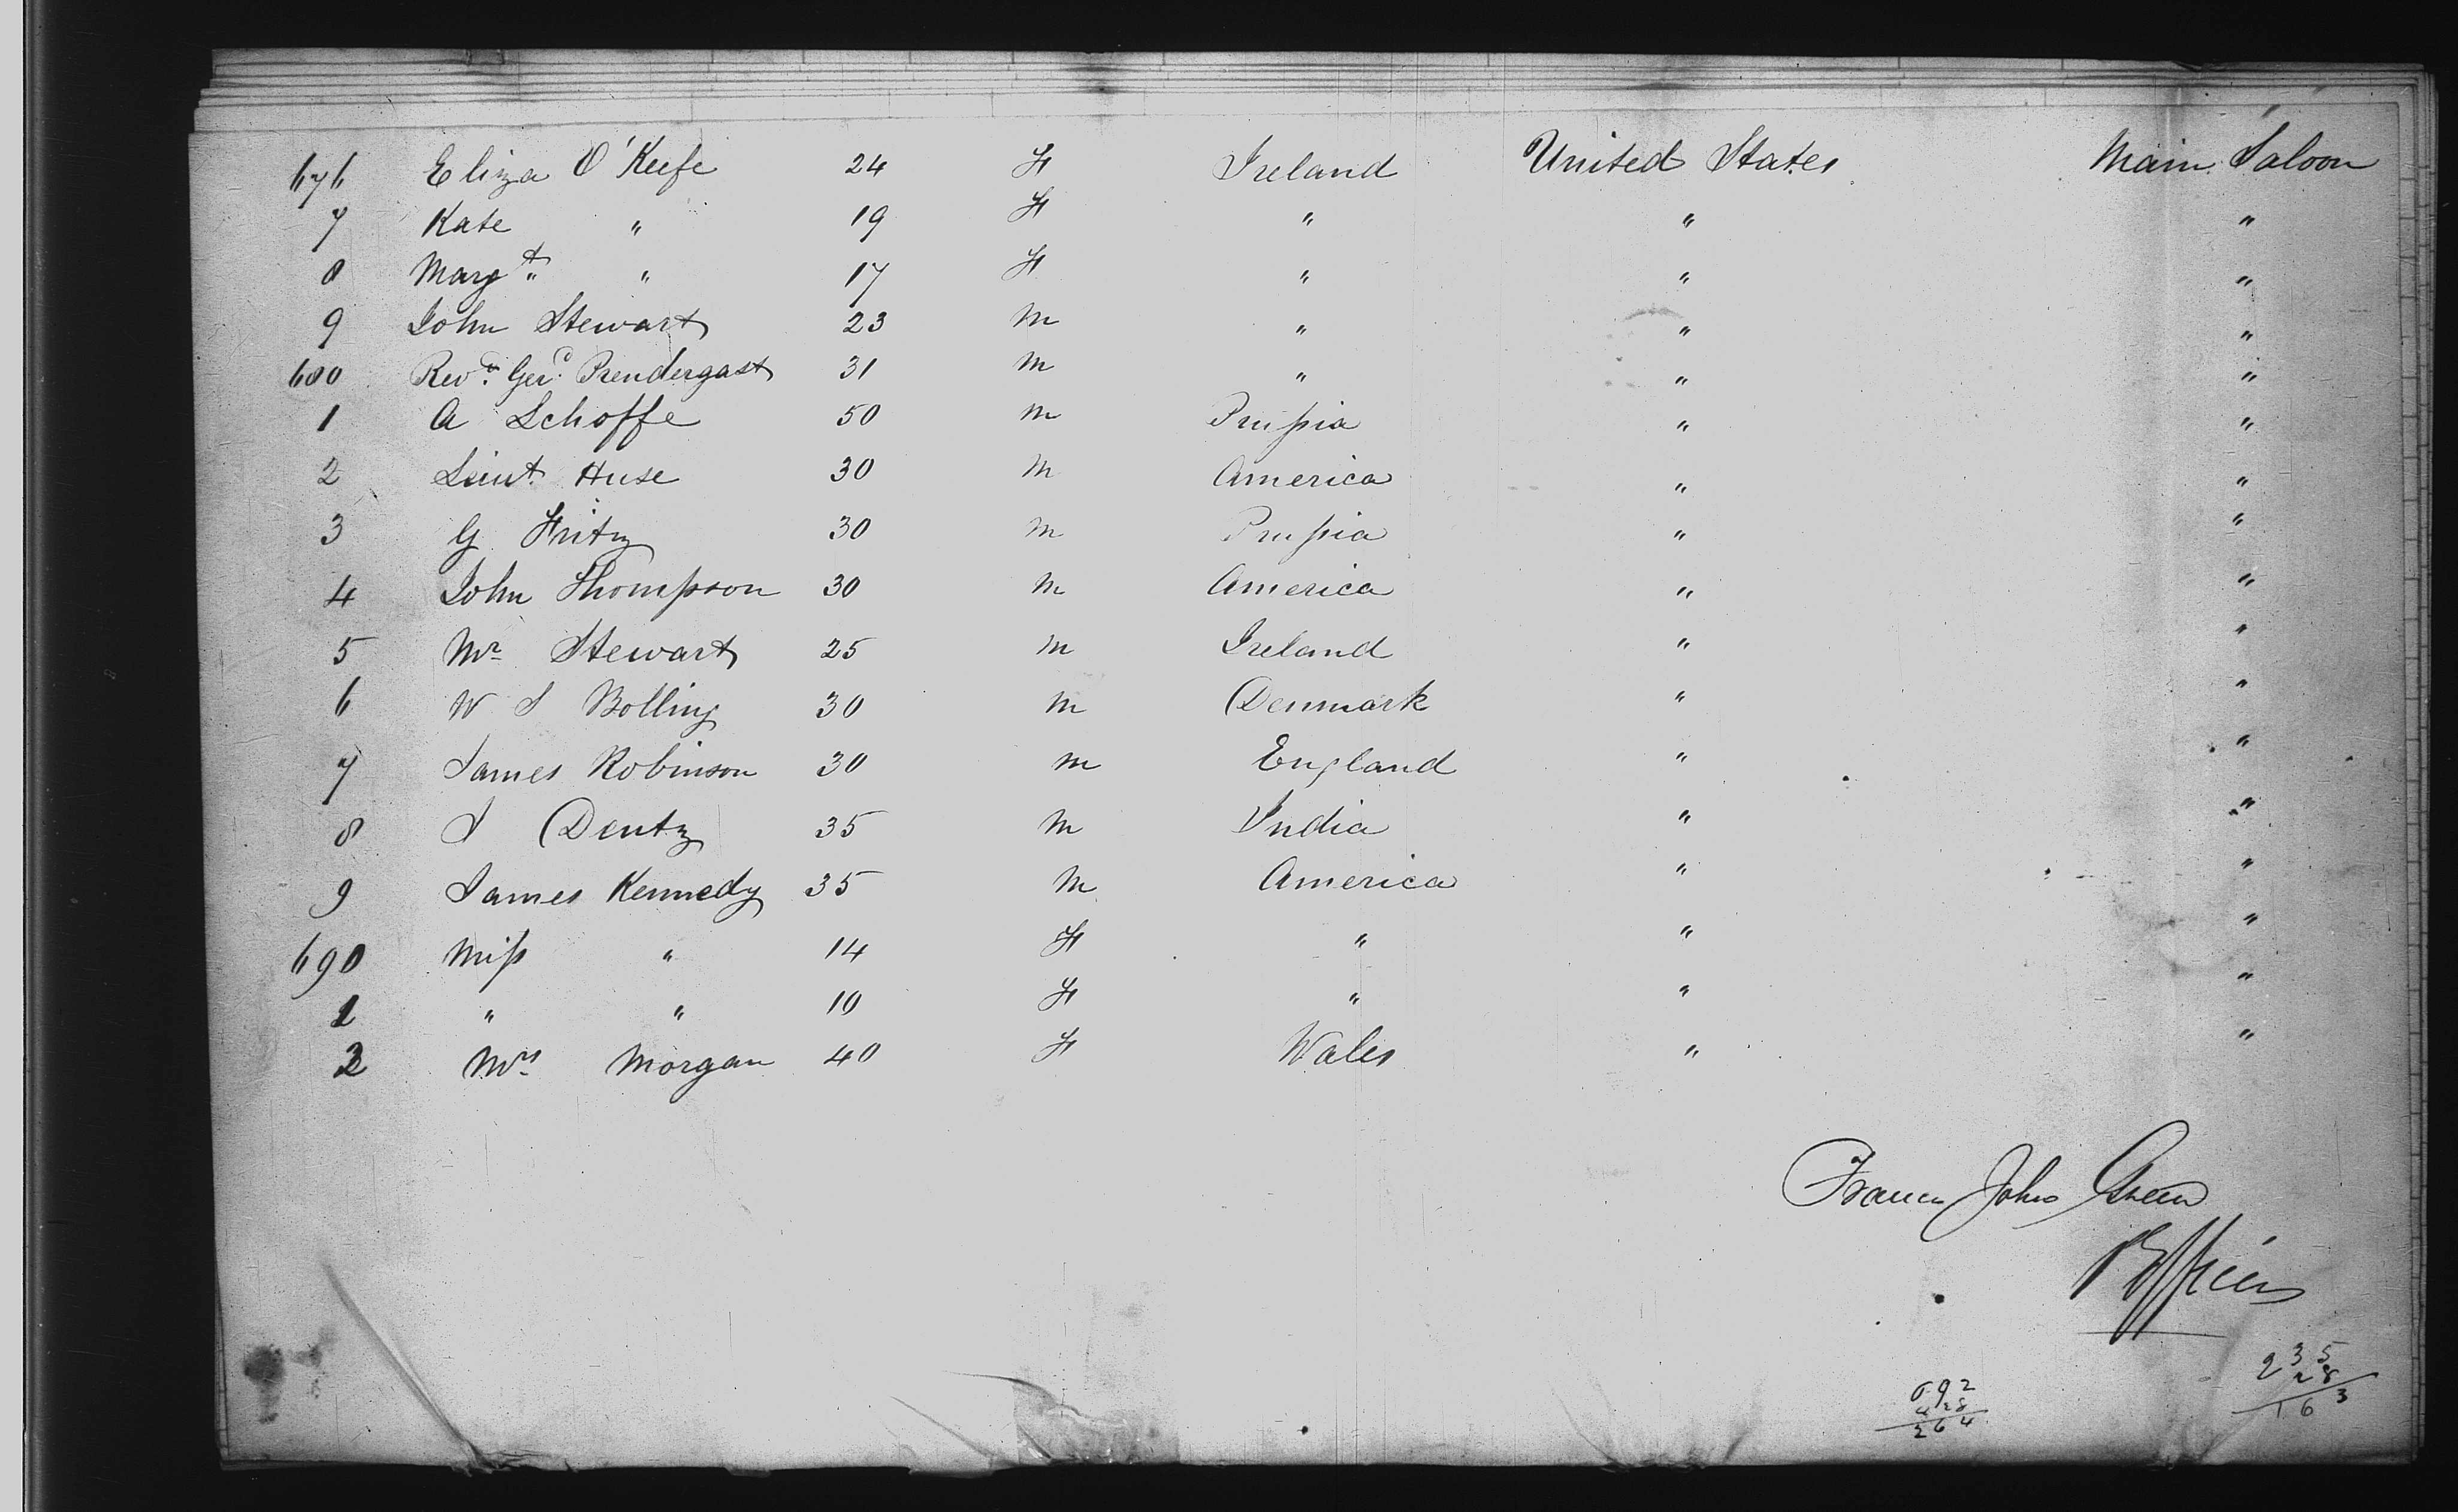 676 Eliza O'Keefe 24 F Ireland United States Main Saloon
7 Kate " 19 F " " "
8 Margt " 17 F " " "
9 John Stewart 23 M " " "
680 Revd. Ger.d Prendergast 31 M " " "
1 A Schoffe 50 M Prussia " "
2 Leiut. Huse 30 M America " "
3 G Fritz 30 M Prussia " "
4 John Thompson 30 M America " "
5 Mr Stewart 25 M Ireland " "
6 W S Bolling 30 M Denmark " "
7 James Robinson 30 M England " "
8 J Dentz 35 M India " "
9 James Kennedy 35 M America " "
690 Miss " 14 F " " "
1 " " 10 F " " "
2 Mrs Morgan 40 F Wales " "
Francis John Green
692
428
264
235
28
163